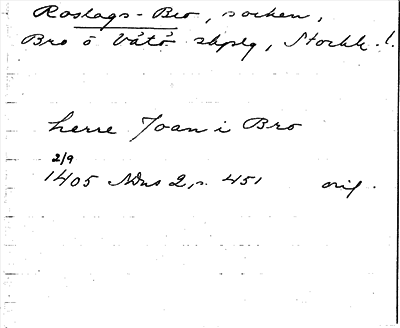 Roslags-Bro, socken,
Bro o Vätö skplg, Stockh. l.
herre Joan i Bro
2/9
1405 SDns 1, s. 451 orig.